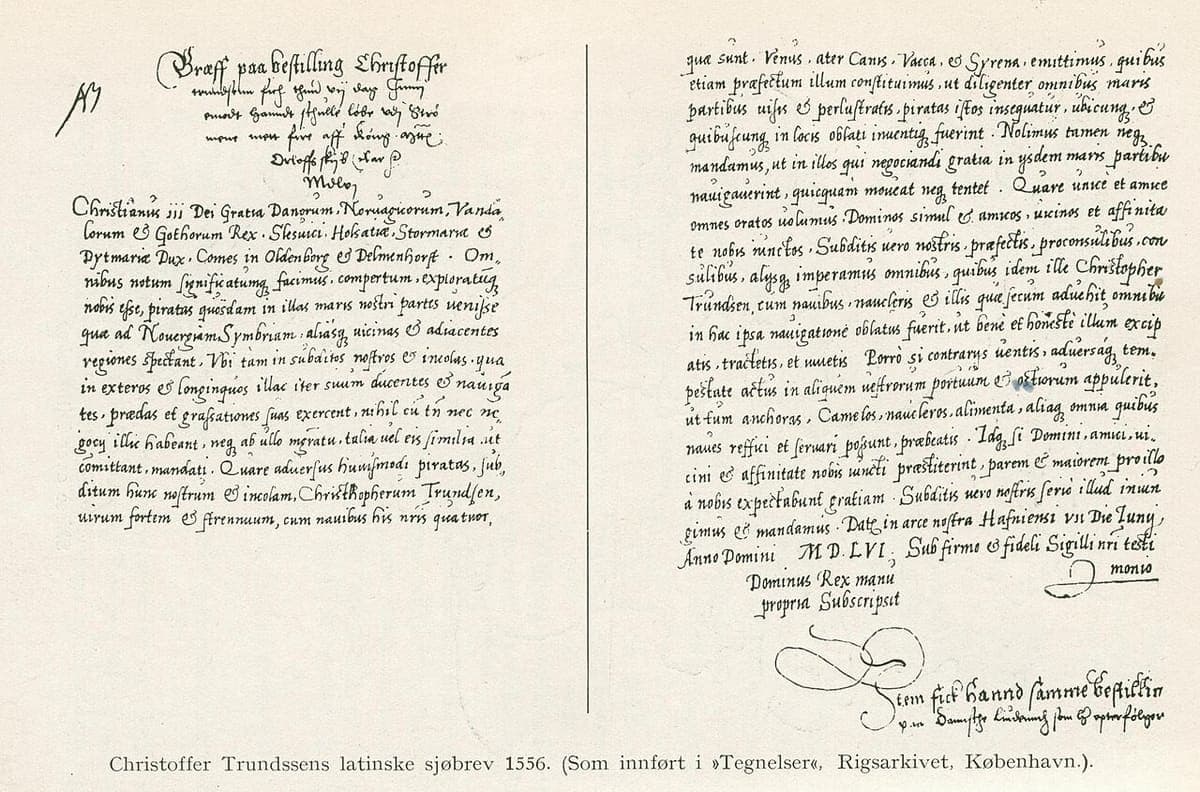 Bræff paa bestilling Christoffer
trundssøn fich thend vij dag Junij
emodt hanndt schulle løbe vdj Strø
mene men fire aff Kong: Matts:
Orloffs skib
Mdlvj
Christianus iii Dei Gratia Danorum, Noruagicorum, Vanda,
lorum & Gothorum Rex. Slesuici, Holsatiæ, Stormariæ &
Dytmariæ Dux, Comes in Oldenborg & Delmenhorst. Om,
nibus notum significatumq facimus, compertum, exploratuq
nobis esse, piratas quosdam in illas maris nostri partes venisse
quæ ad Nouergiam Symbriam, aliasq vicinas & adiacentes
regiones spectant. Vbi tam in subditos nostros & incolas, qua
in exteros & longinquos illac iter suum ducentes & nauiga
tes, prædas et grassationes suas exercent, nihil cū tn̄ nec ne
gocij illic habeant, neq ab ullo mgratu, talia vel eis similia ut
comittant, mandati. Quare aduersus huiusmodi piratas, sub,
ditum hunc nostrum & incolam, Christhopherum Trundsen,
uirum fortem & strennuum, cum nauibus his nris quatuor,
quæ sunt. Venus, ater Canis, Vacca, & Syrena, emittimus, quibus
etiam præfectum illum constituimus, ut diligenter omnibus maris
partibus uisis et perlustratis, piratas istos insequatur, ubicunq &
quibuscunq in locis oblati inuentiq fuerint. Nolimus tamen neq
mandamus, ut in illos qui negociandi gratia in ysdem maris partibu
nauigauerint, quicquam moueat neq tentet. Quare unicè et amice
omnes oratos uolumus, Dominos simul & amicos, uicinos et affinita
te nobis iunctos, Subditis uero nostris, præfectis, proconsulibus, con
sulibus, alijsq imperamus omnibus, quibus idem ille Christopher
Trundsen, cum nauibus, naucleris & illis quæ secum aduehit omnibu
in hac ipsa nauigatione oblatus fuerit, ut benè et honestè illum excip
atis, tractetis, et iuuetis Porrò si contrarys uentis, aduersaq tem.
pestate actus in aliquem uestrorum portuum & ostiorum appulerit,
ut tum anchoras, Camelos, naucleros, alimenta, aliaq omnia quibus
naues reffici et seruari possunt, præbeatis. Idq si Domini, amici, ui,
cini & affinitate nobis iuncti præstiterint, parem & maiorem pro illo
à nobis expectabunt gratiam. Subditis uero nostris seriò illud iniun
gimus & mandamus. Datę in arce nostra Hafniensi VII Die Iunij,
Anno Domini M D. LVI. Sub firmo & fideli Sigilli nrī testi
monio
Dominus Rex manu
propria Subscripsit
Item fick hannd samme bestillin
som epterfølger
Christoffer Trundssens latinske sjøbrev 1556. (Som innført i »Tegnelser«, Rigsarkivet, København.).